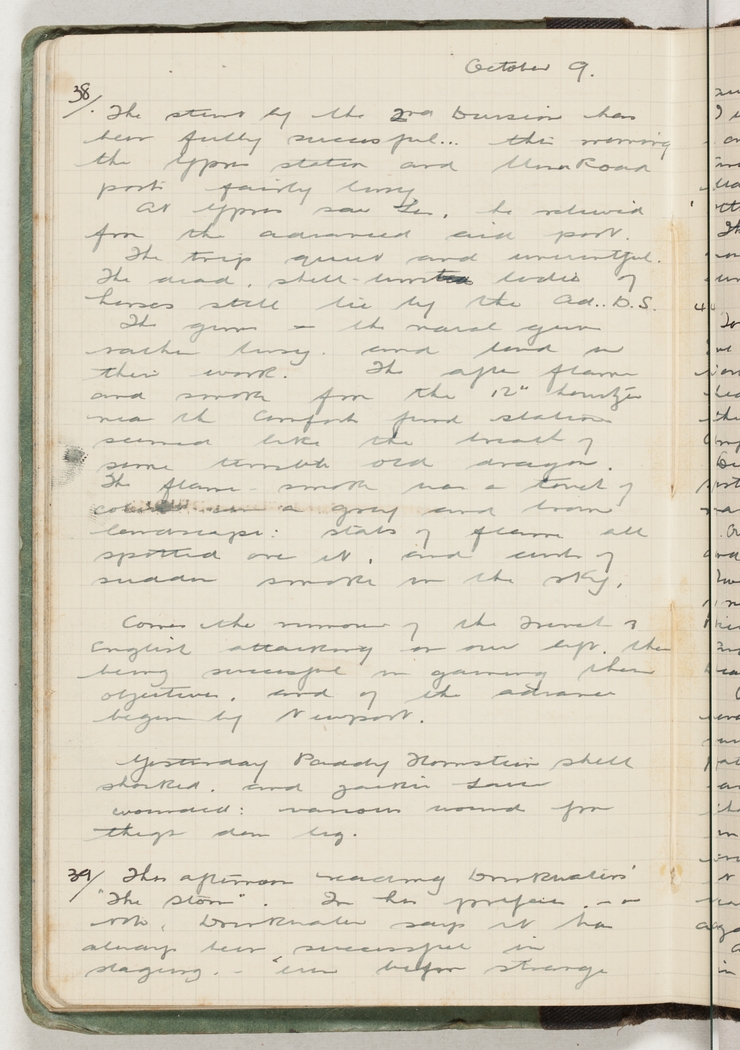 October 9.
38/. The stunt by the 2nd Division has
been fully successful... this morning
the Ypres station and Menin Road
posts fairly busy
At Ypres saw Les, he relieved
from the advanced aid post.
The trip quiet and uneventful.
The dead, shell- bodies of
horses still lie by the Ad..D.S.
The guns - the naval guns
rather busy. and loud in
their work. The after flame
and smoke from the 12" howitzer
near the Comforts fund station
seemed like the breath of
some terrible old dragon.
The flame - smoke was a of
in a grey and brown
landscape: stabs of flame all
spotted over it, and curls of
sudden smoke in the sky.
Comes the rumour of the French &
English attacking on our left, their
being successful in gaining their
objectives, and of the advance
begun by Nieuport.
Yesterday Paddy Hornstein shell
shocked, and Law
wounded: various wounds from
thigh down leg.
39/ This afternoon reading Drinkwater's
"The Storm". In his preface -
note, Drinkwater says it has
always been successful in
staging. - 'even before strange